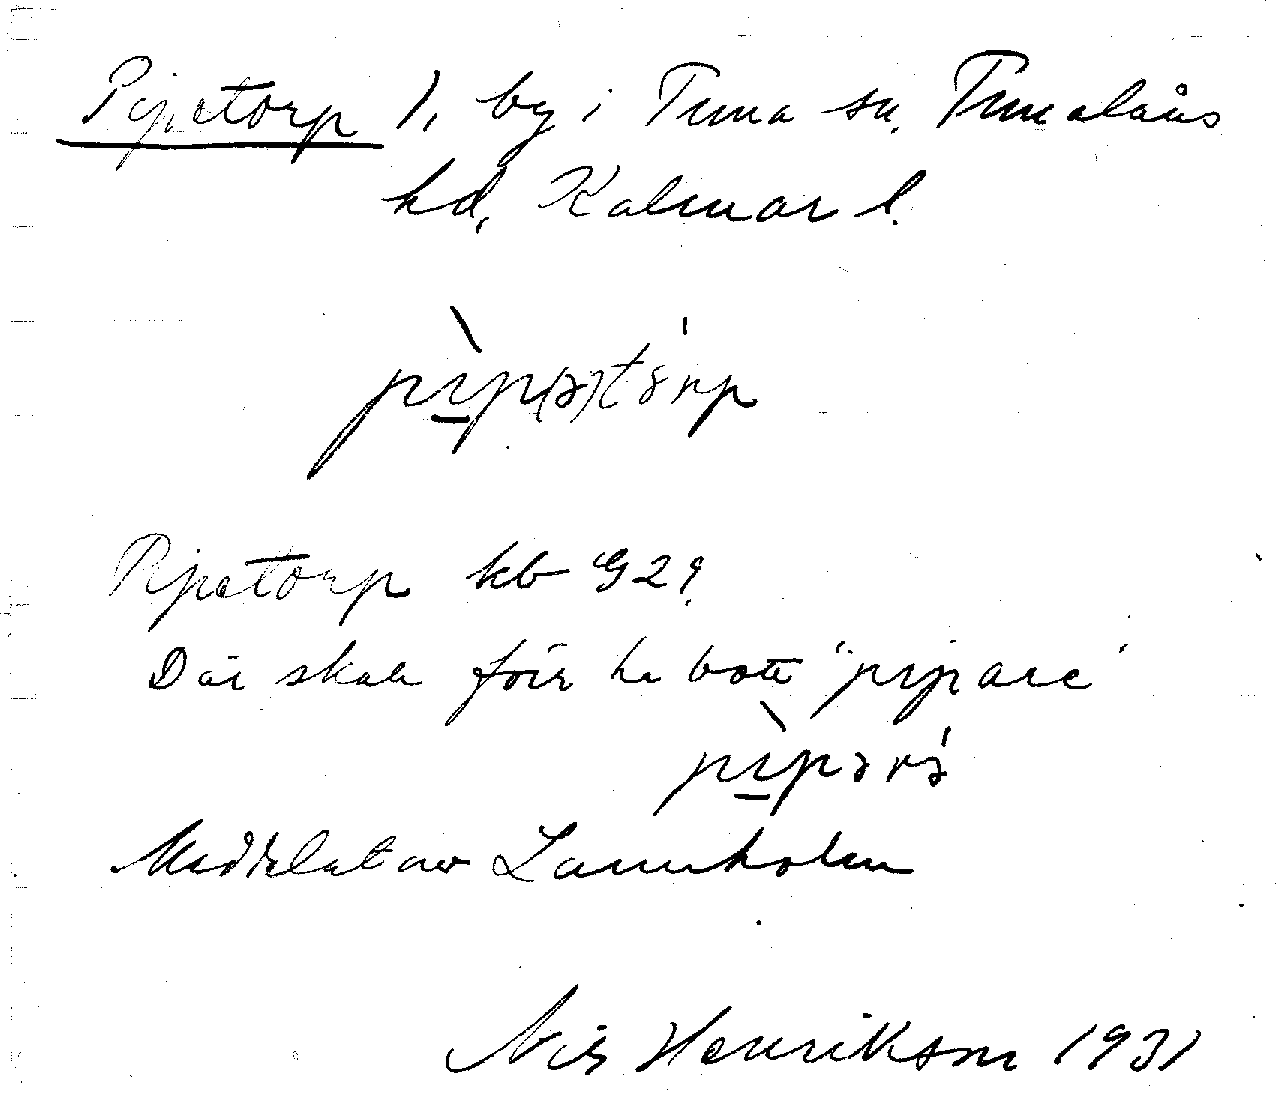 Pipetorp 1, by i Tuna sn. Tunaläns
hd, Kalmar l.
pìp(ə)tórp
Pipetorp kb G29.
Där skall förr ha bott "pipare"
pìpərə́
Meddelat av Lannholm
Nils Henrikson 1931